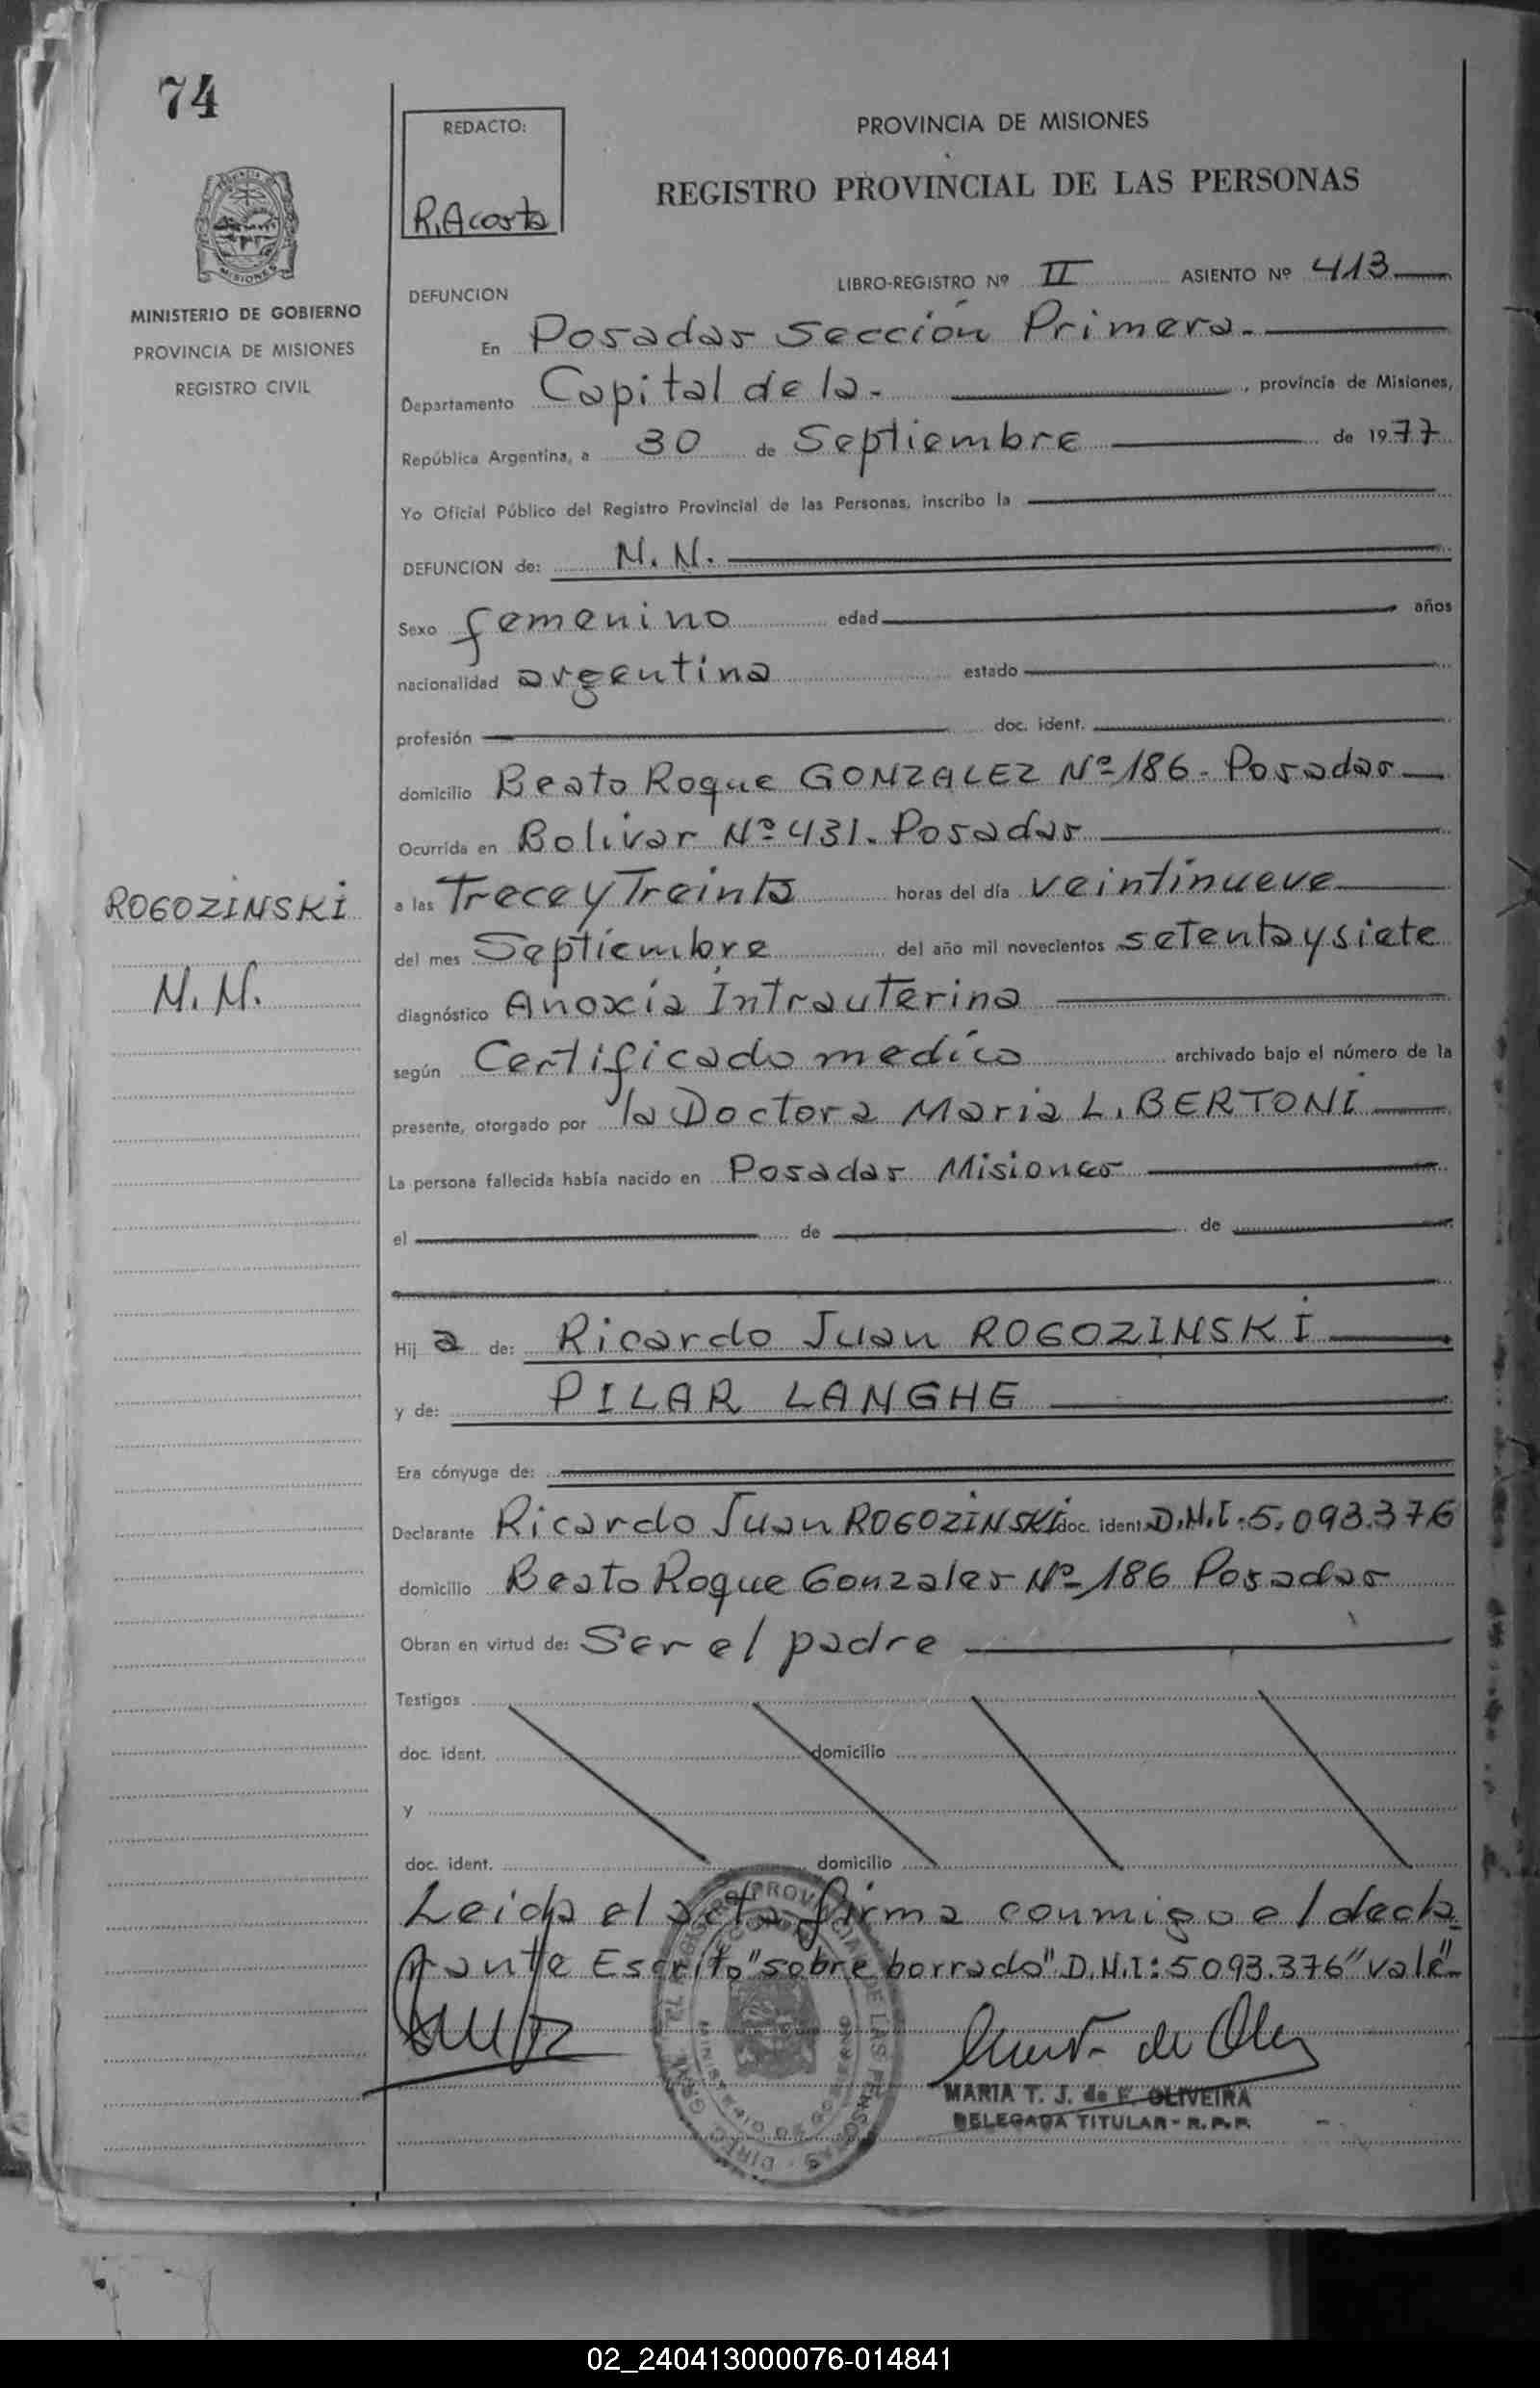 74
REDACTO:
R. Acosta
PROVINCIA DE MISIONES
REGISTRO PROVINCIAL DE LAS PERSONAS
MINISTERIO DE GOBIERNO
PROVINCIA DE MISIONES
REGISTRO CIVIL
DEFUNCION
LIBRO-REGISTRO Nº II ASIENTO Nº 413
En Posadas sección Primera.
Departamento Capital de la. , provincia de Misiones,
República Argentina, a 30 de Septiembre de 1977
Yo Oficial Público del Registro Provincial de las Personas, inscribo la
DEFUNCION de: N. N.
Sexo femenino edad años
nacionalidad argentina estado
profesión doc. ident.
domicilio Beato Roque GONZALEZ Nº 186. Posadas
Ocurrida en Bolivar Nº 431. Posadas
a las Trece y Treinta horas del día veintinueve
del mes Septiembre del año mil novecientos setenta y siete
diagnóstico Anoxia Intrauterina
según Certificado medíco archivado bajo el número de la
presente, otorgado por la Doctora Maria L. BERTONI
La persona fallecida había nacido en Posadas Misiones
el de de
Hij a de: Ricardo Juan ROGOZINSKI
y de: PILAR LANGHE
Era cónyuge de:
Declarante Ricardo Juan ROGOZINSKI doc. ident. D.N.I. 5.093.376
domicilio Beato Roque Gonzales Nº 186 Posadas
Obran en virtud de: Ser el padre
Testigos
doc. ident. domicilio
y
doc. ident. domicilio
Leida el acta firma conmigo el decla
rante Escrito "sobre borrado" D.N.I: 5093.376 "vale"
ROGOZINSKI
N. N.
MARIA T. J. de F. OLIVEIRA
DELEGADA TITULAR - R. P. P.
02_240413000076-014841